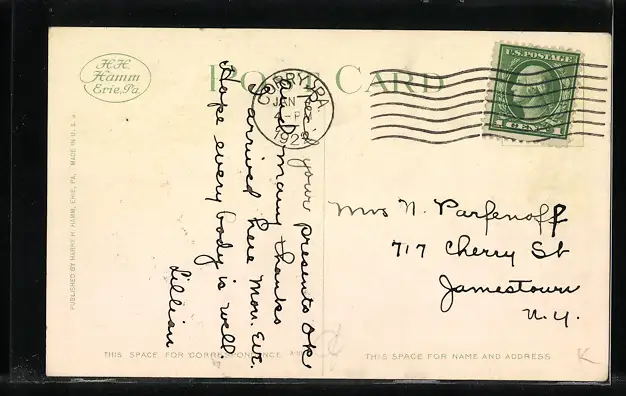 H.H.
Hamm
Erie, Pa.
POST CARD
CORRY, PA.
JAN
192
U.S. POSTAGE
1 CENT 1
Rec'd your presents OK
and many thanks
I arrived here Mon. Eve.
Hope every body is well.
Lillian
Mrs N. Parfenoff
717 Cherry St
Jamestown
N.Y.
PUBLISHED BY HARRY H. HAMM, ERIE, PA. MADE IN U.S.A.
THIS SPACE FOR CORRESPONDENCE
THIS SPACE FOR NAME AND ADDRESS
K